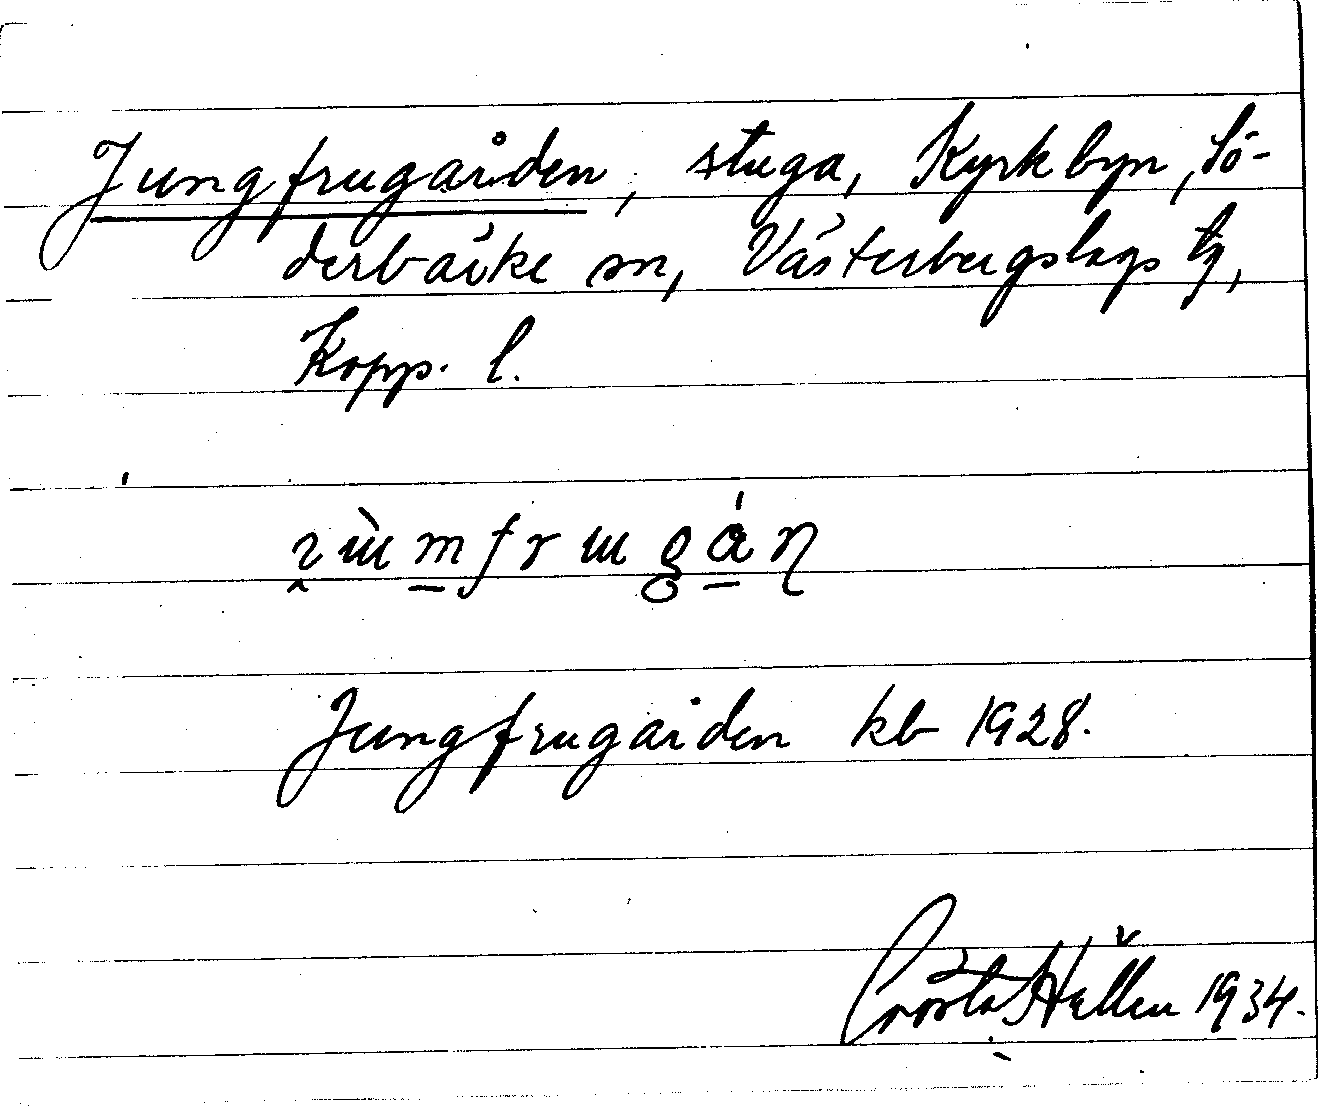 Jungfrugården, stuga, Kyrkbyn, Sö-
derbärke sn, Västerbergslags tg,
Kopp. l.
Jungfrugården kb 1928.
Gösta Hallén 1934.